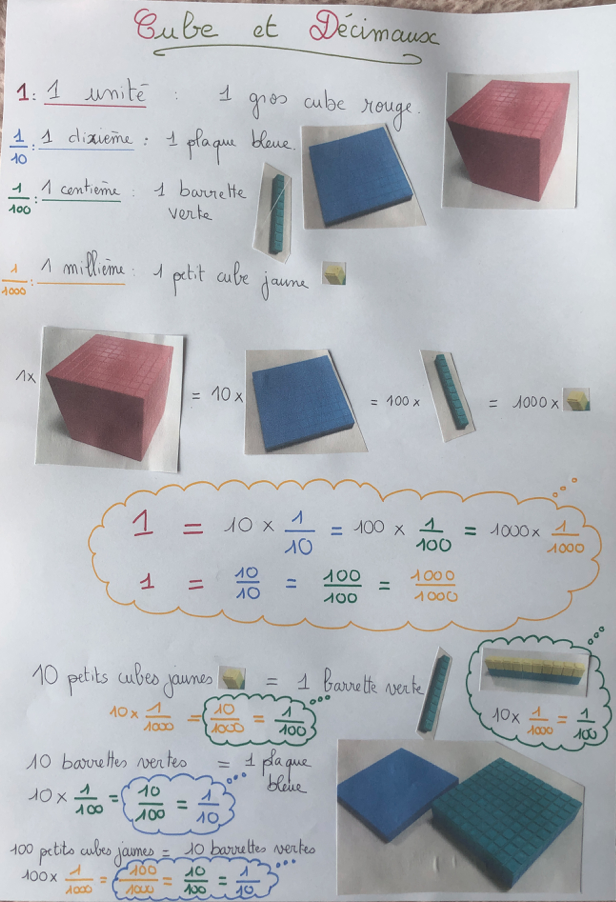 Cube et Décimaux
1: 1 unité : 1 gros cube rouge.
1/10: 1 dixième : 1 plaque bleue.
1/100: 1 centième : 1 barrette
verte
1/1000: 1 millième : 1 petit cube jaune
1x = 10x = 100x = 1000x
1 = 10 x 1/10 = 100 x 1/100 = 1000x 1/1000
1 = 10/10 = 100/100 = 1000/1000
10 petits cubes jaunes = 1 barrette verte
10x 1/1000 = 10/1000 = 1/100
10x 1/1000 = 1/100
10 barrettes vertes = 1 plaque
bleue
10 x 1/100 = 10/100 = 1/10
100 petits cubes jaunes = 10 barrettes vertes
100x 1/1000 = 100/1000 = 10/100 = 1/10